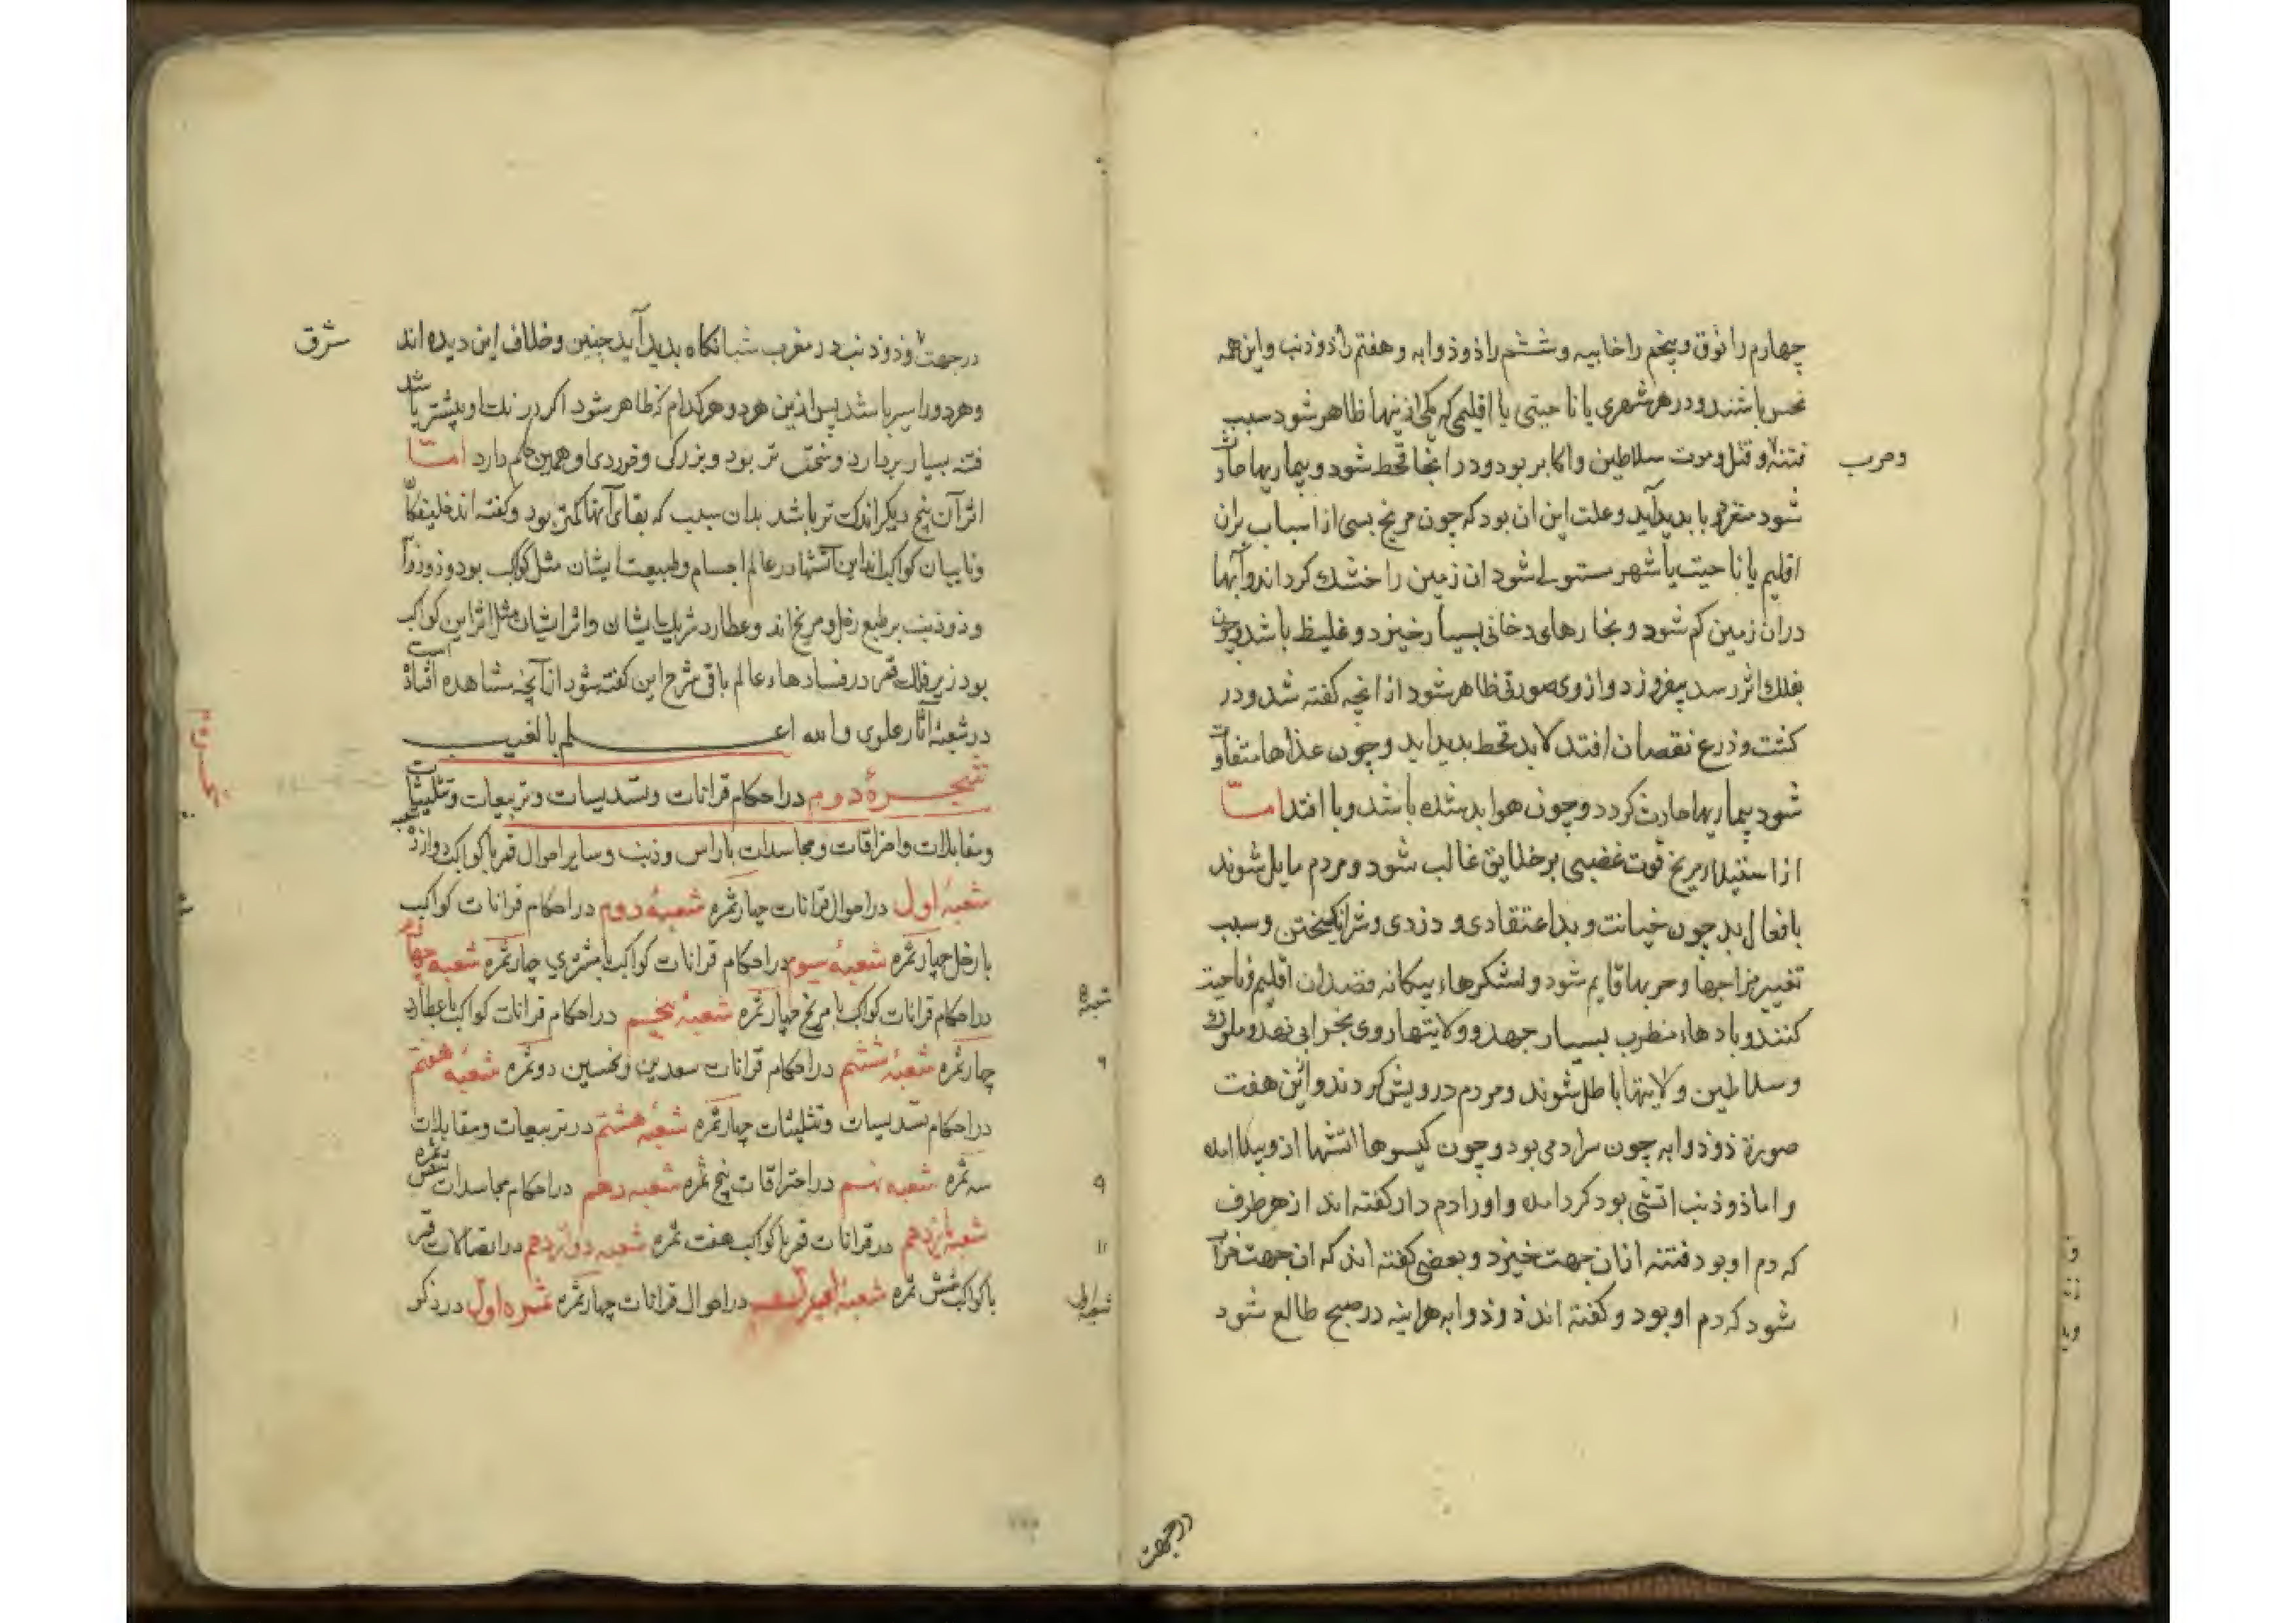 چهارم را نوق و پنجم را خابیه و ششم را ذو ذوابه و هفتم را ذو ذنب و این همه
نحس باشند و در هر شهری یا ناحیتی یا اقلیمی که یکی از ینها ظاهر شود سبب
فتنه و قتل و موت سلاطین و اکابر بود و در انجا قحط شود و بیماریها حادث
و حرب
شود بدیدآید و علت این ان بود که چون مریخ بسی از اسباب بران
اقلیم یا ناحیت یا شهر مستولی شود ان زمین را خشک کرداند و آبها
دران زمین کم شود و بخارهای دخانی بسیار خیزد و غلیظ باشد و چون
بفلک اثر رسد بیفروزد و ازوی صورتی ظاهر شود از انچه کفته شد و در
کشت و زرع نقصان افتد لابد قحط بدید اید و چون غذاها متفاوت
شود بیماریها حادث کردد و چون هوا بد شده باشد وبا افتد امّا
از استیلاء مریخ قوت غضبی بر خلایق غالب شود و مردم مایل شوند
بافعال بد چون خیانت و بداعتقادی و دزدی و شر انکیختن و سبب
تغییر مزاجها و حربها قایم شود و لشکرهاء بیکانه قصد ان اقلیم و ناحیت
کنند و بادهاء مضطرب بسیار جهد و ولایتها روی بخرابی نهد و ملوک
و سلاطین و لایتها باطل شوند و مردم درویش کردند و ازین هفت
صورة ذو ذوابه چون سرادمی بود و چون کیسوها اتشها ازو بیکا امده
و اما ذو ذنب اتشی بود کرد امده و اورا دم دار کفته اند از هر طرف
که دم او بود فتنه ازان جهت خیزد و بعضی کفته اند که ان جهت خراب
شود که دم او بود و کفته اند ذو ذوابه هراینه در صبح طالع شود
درجهت
در جهت و ذو ذنب در مغرب شبانکاه بدید آید چنین و خلاف این دیده اند
شرق
و هر دو را سیر باشد پس ازین هر دو هر کدام که ظاهر شود اکر در نلت او بیشتر باشد
فتنه بسیار بر دارد و تر بود و بزرکی و خوردی او همین حکم دارد امّا
اثر آن پنج دیکر اندک تر باشد بدان سبب که بقای آنها کمتر بود و کفته اند
کواکب اند این آتشها در عالم اجسام و طبیعت ایشان مثل کواکب بود و ذو ذوا
و ذو ذنب بر طبع زحل و مریخ اند و عطارد شریک ایشان و اثر ایشان مثل اثر این کواکب
بود زیر فلک قمر در فسادهاء عالم باقی شرح این کفته شود از آنچه مشاهده افتاده است
در شعبه آثار علوی و الله اعلم بالغیب
شجره دوم در احکام قرانات و تسدیسات و تربیعات و تثلیثات
و مقابلات و احتراقات و مجاسدات با راس و ذنب و سایر احوال قمر با کواکب دوازده شعبه
شعبه اول در احوال قرانات چهار ثمره شعبه دوم در احکام قرانات کواکب
با زحل چهار ثمره شعبه سیوم در احکام قرانات کواکب با مشتری چار ثمره شعبه چهارم
در احکام قرانات کواکب با مریخ چهار ثمره شعبه پنجم در احکام قرانات کواکب با عطارد
چار ثمره شعبه ششم در احکام قرانات سعدین و نحسین دو ثمره شعبه هفتم
در احکام تسدیسات و تثلیثات چهار ثمره شعبه هشتم در تربیعات و مقابلات
سه ثمره شعبه نهم در احتراقات پنج ثمره شعبه دهم در احکام مجاسدات شش ثمره
شعبه یازدهم در قرانات قمر با کواکب هفت ثمره شعبه دوازدهم در اتصالات قمر
با کواکب شش ثمره شعبه اول در احوال قرانات چهار ثمره ثمره اول در ذکر